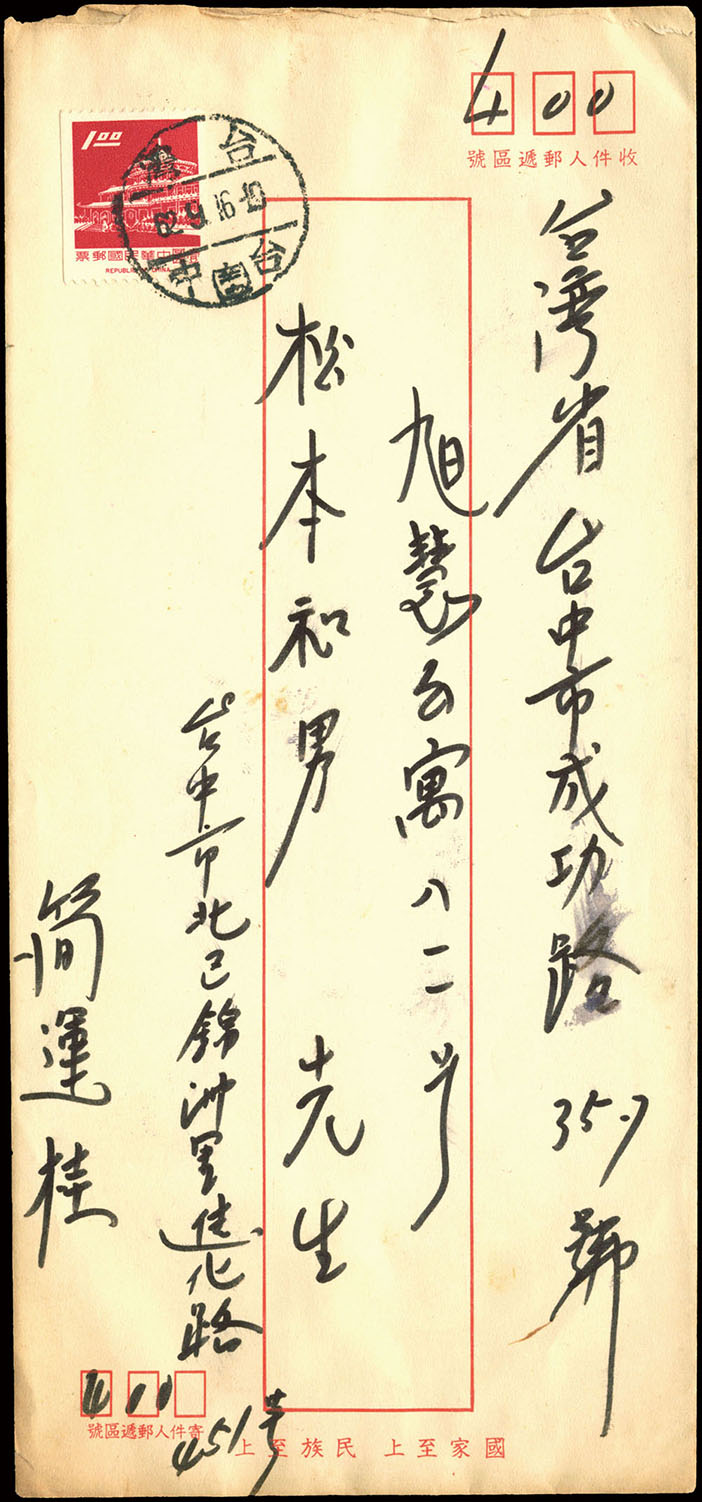 400
收件人郵遞區號
台湾省台中市成功路357號
旭慧公寓八二号
松本和男 先生
台中市北区錦洲里進化路
451号
簡運桂
400
寄件人郵遞區號
國家至上 民族至上
1.00
中華民國郵票
REPUBLIC CHINA
台灣
62.9.16.10
台中